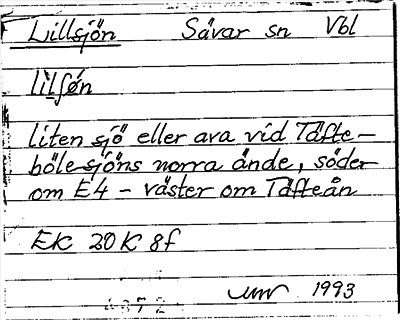 Lillsjön Sävar sn Vbl
lìlʃøn
liten sjö eller ava vid Täfte-
böle-sjöns norra ände, söder
om E4 - väster om Täfteån
EK 20K 8f
1993